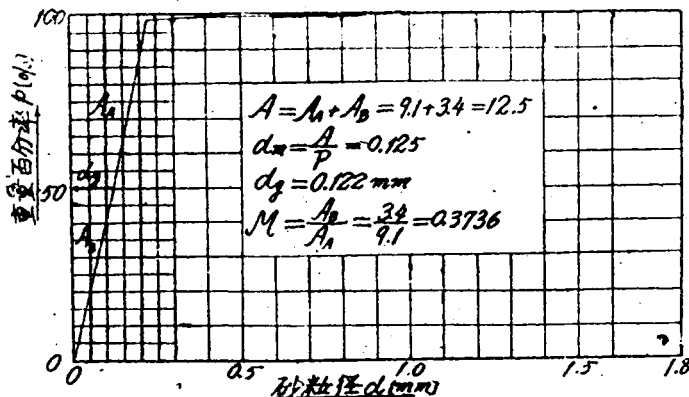 100
50
0
重量百分率 P(%)
A_A
d_g
A_B
A = A_A + A_B = 9.1 + 3.4 = 12.5
d_m = A/P = 0.125
d_g = 0.122 mm
M = A_B/A_A = 3.4/9.1 = 0.3736
0 0.5 1.0 1.5 1.8
砂粒径 d [mm]